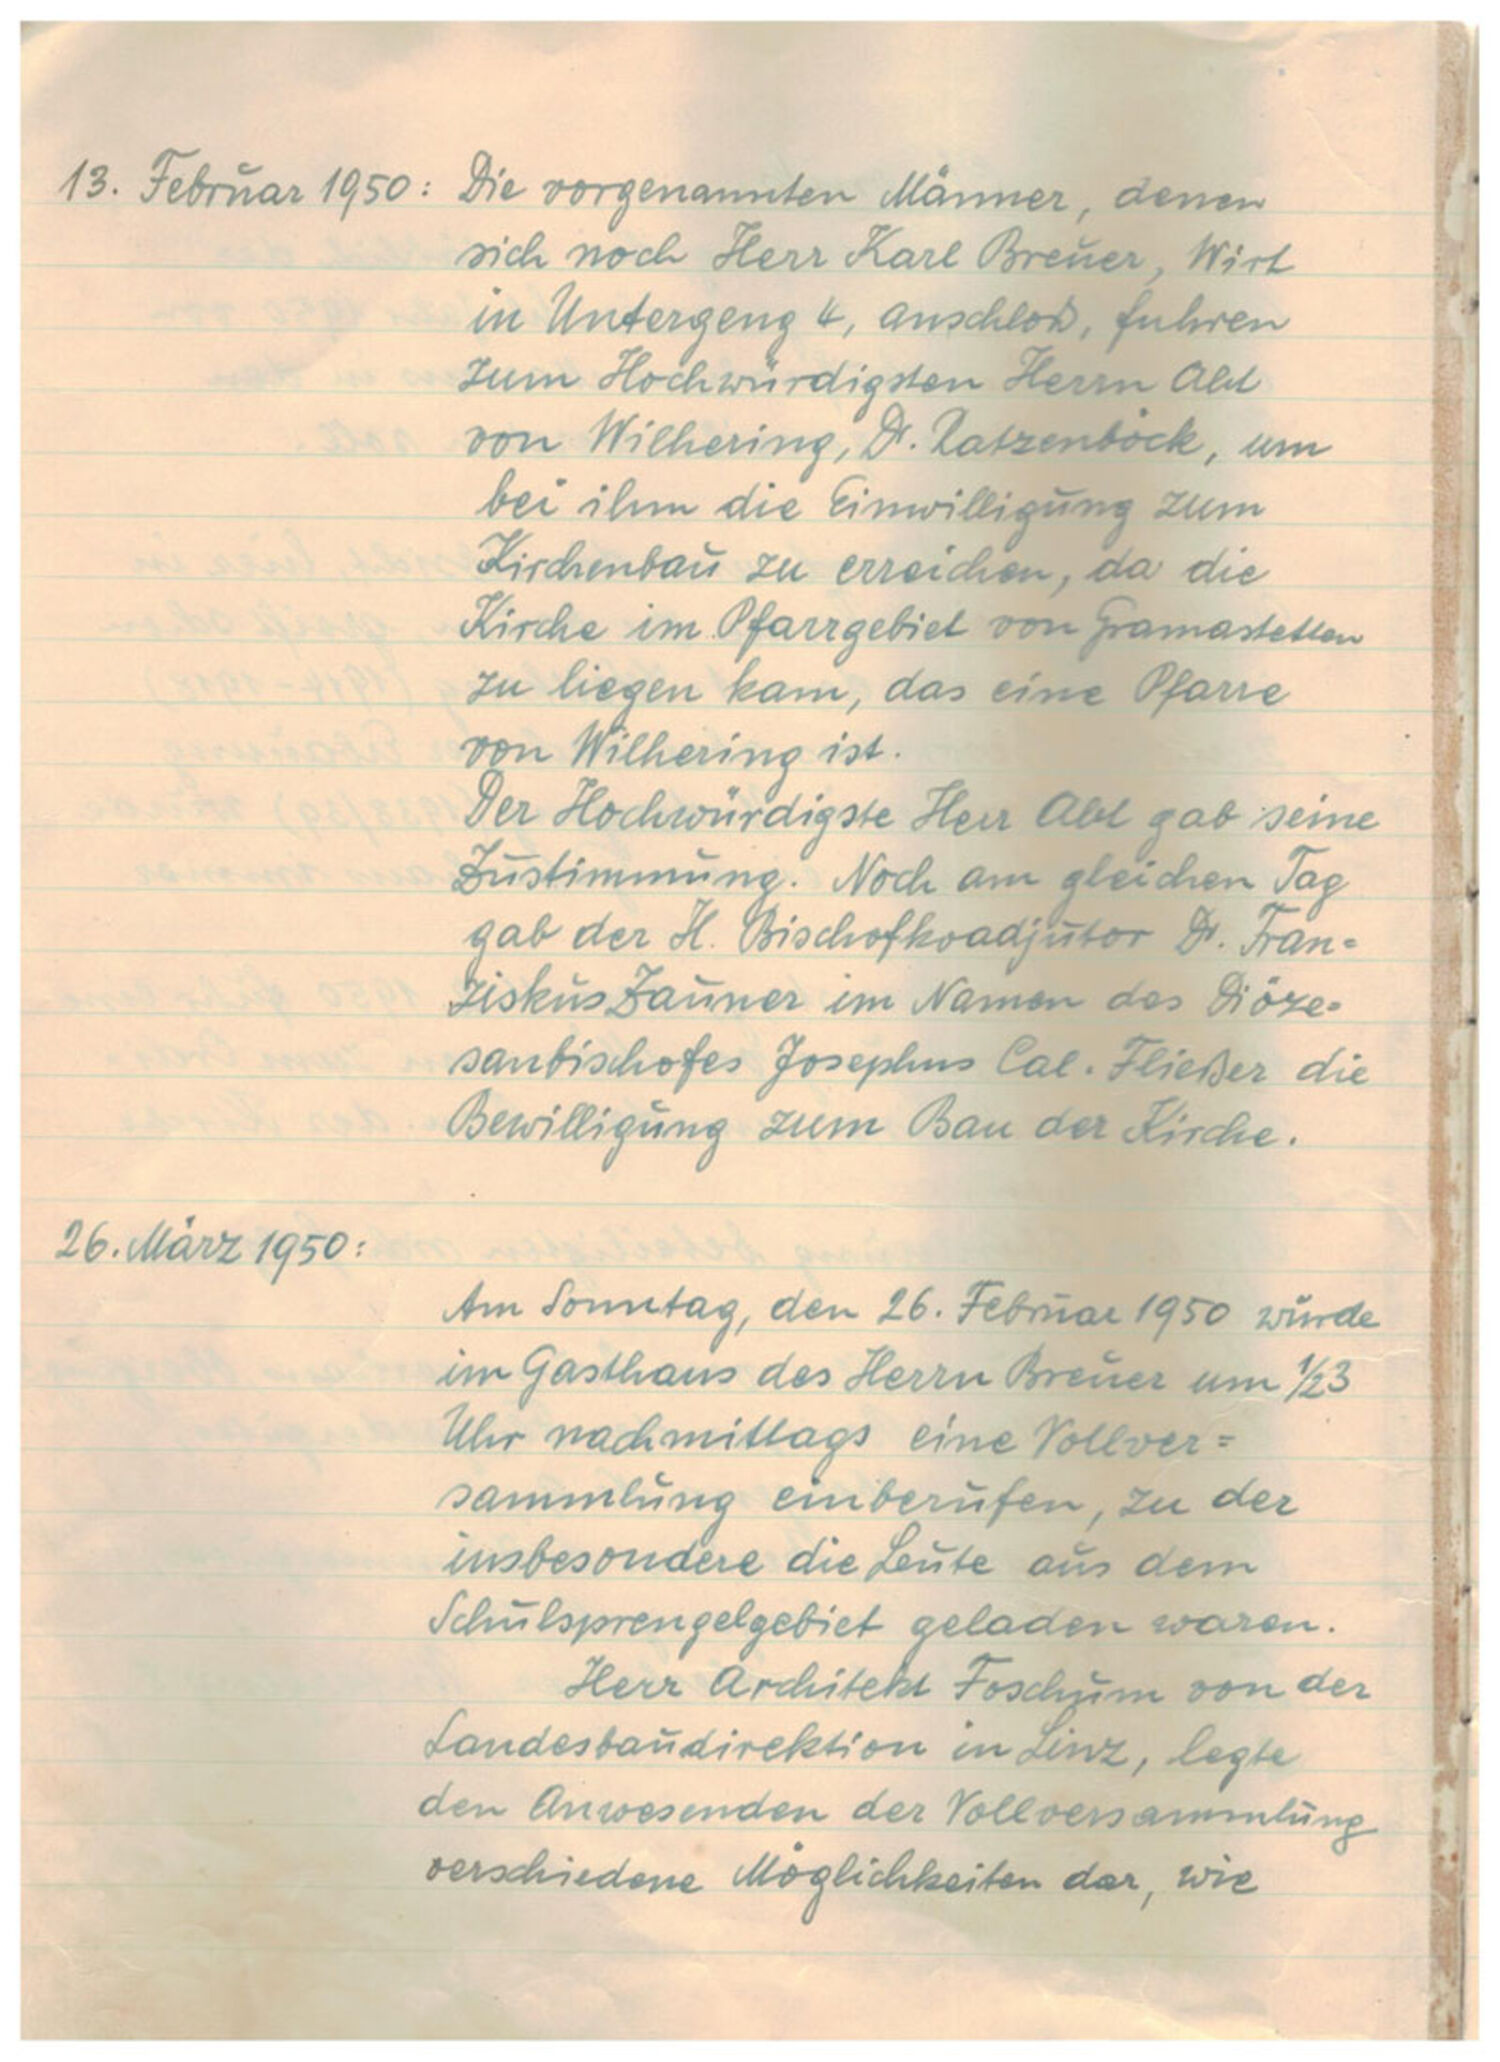 13. Februar 1950: Die vorgenannten Männer, denen
sich noch Herr Karl Breuer, Wirt
in Untergeng 4, anschloß, fuhren
zum Hochwürdigsten Herrn Abt
von Wilhering, Dr. Ratzenböck, um
bei ihm die Einwilligung zum
Kirchenbau zu erreichen, da die
Kirche im Pfarrgebiet von Gramastetten
zu liegen kam, das eine Pfarre
von Wilhering ist.
Der Hochwürdigste Herr Abt gab seine
Zustimmung. Noch am gleichen Tag
gab der H. Bischofkoadjutor Dr. Fran=
ziskus Zauner im Namen des Diöze=
sanbischofes Josephus Cal. Fließer die
Bewilligung zum Bau der Kirche.
26. März 1950:
Am Sonntag, den 26. Februar 1950 wurde
im Gasthaus des Herrn Breuer um 1/23
Uhr nachmittags eine Vollver=
sammlung einberufen, zu der
insbesondere die Leute aus dem
Schulsprengelgebiet geladen waren.
Herr Architekt Foschum von der
Landesbaudirektion in Linz, legte
den Anwesenden der Vollversammlung
verschiedene Möglichkeiten dar, wie